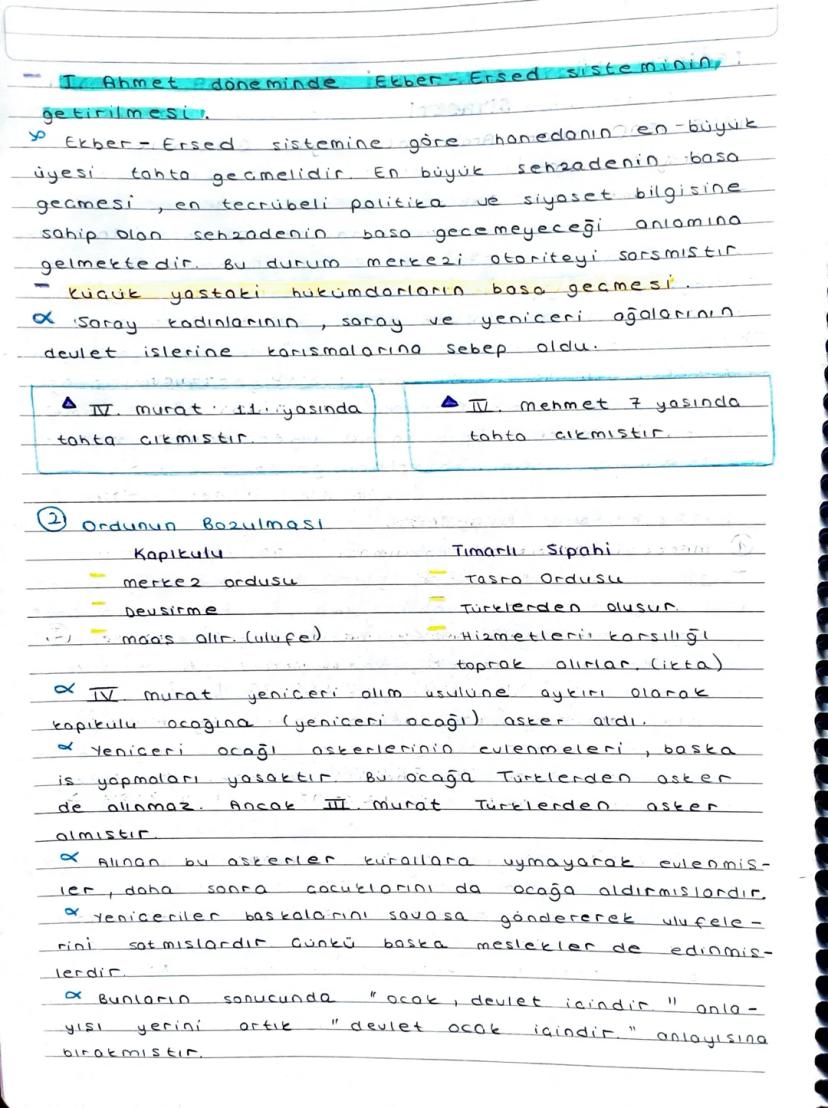 - I. Ahmet döneminde Ekber-Ersed sisteminin,
getirilmesi.
Ekber-Ersed sistemine göre hanedanın en-büyük
üyesi tahta gecmelidir. En büyük sehzadenin basa
gecmesi, en tecrübeli politika ve siyaset bilgisine
sahip olan sehzadenin basa gecemeyeceği anlamına
gelmektedir. Bu durum merkezi otoriteyi sarsmıstır
- Kücük yastaki hükümdarların basa gecmesi.
∝ Saray kadınlarının, saray ve yeniceri ağalarının
devlet islerine karısmalarına sebep oldu.
▲ IV. murat 11. yasında
tahta cıkmıstır.
▲ IV. mehmet 7 yasında
tahta cıkmıstır.
② Ordunun Bozulması
Kapıkulu
- merkez ordusu
- Devsirme
- maas alır. (ulufe)
Tımarlı Sipahi
- Tasra Ordusu
- Türklerden olusur.
- Hizmetleri karsılığı
toprak alırlar. (ikta)
∝ IV murat yeniceri alım usulüne aykırı olarak
kapıkulu ocağına (yeniceri ocağı) asker aldı.
∝ Yeniceri ocağı askerlerinin evlenmeleri, baska
is yapmaları yasaktır. Bu ocağa Türklerden asker
de alınmaz. Ancak III. murat Türklerden asker
almıstır.
∝ Alınan bu askerler kurallara uymayarak evlenmis-
ler, daha sonra cocuklarını da ocağa aldırmıslardır.
∝ Yeniceriler baskalarını savasa göndererek ulufele-
rini satmıslardır Cünkü baska meslekler de edinmis-
lerdir.
∝ Bunların sonucunda "ocak, devlet icindir." anla-
yısı yerini artık "devlet ocak icindir." anlayısına
bırakmıstır.